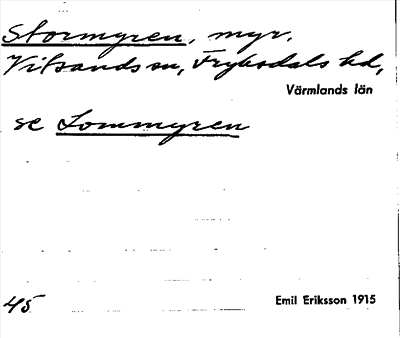 Stormyren, myr.
Vitsands sn, Fryksdals hd,
Värmlands län
se Lommyren
45
Emil Eriksson 1915